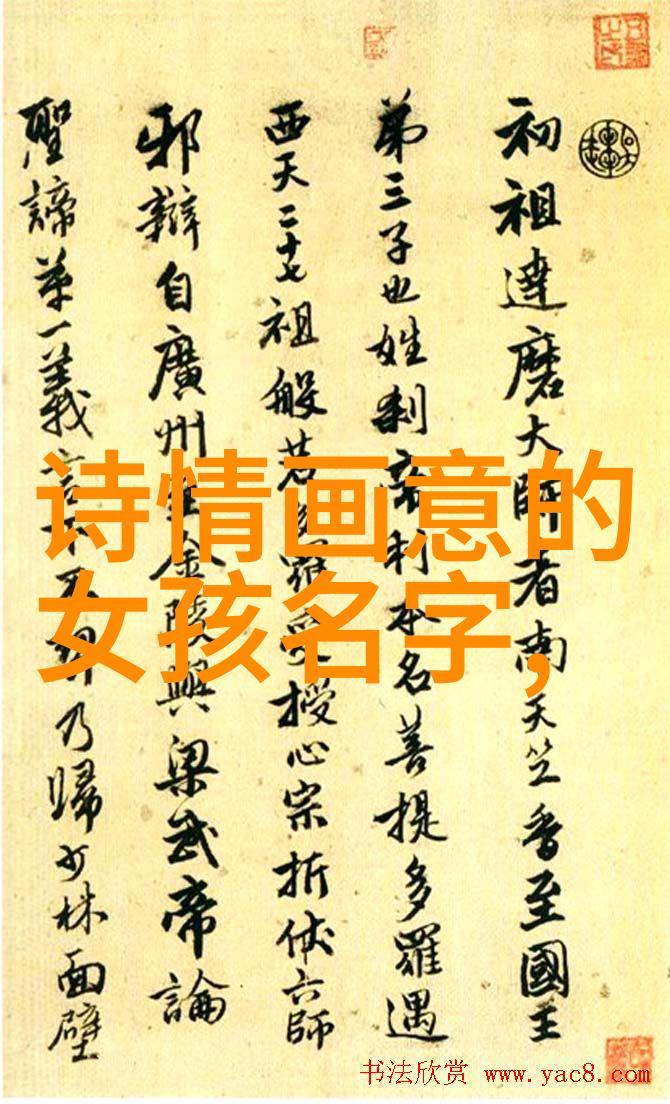 初祖達磨大師者南天竺香至國王
第三子也姓刹帝利本名菩提多羅遇
西天二十七祖般若多羅授心宗折伏六師
邪辯自廣州至金陵與梁武帝論
聖諦第一義言不契乃歸少林面壁
诗情画意的
女孩名字,
书法欣赏 www.yac8.com